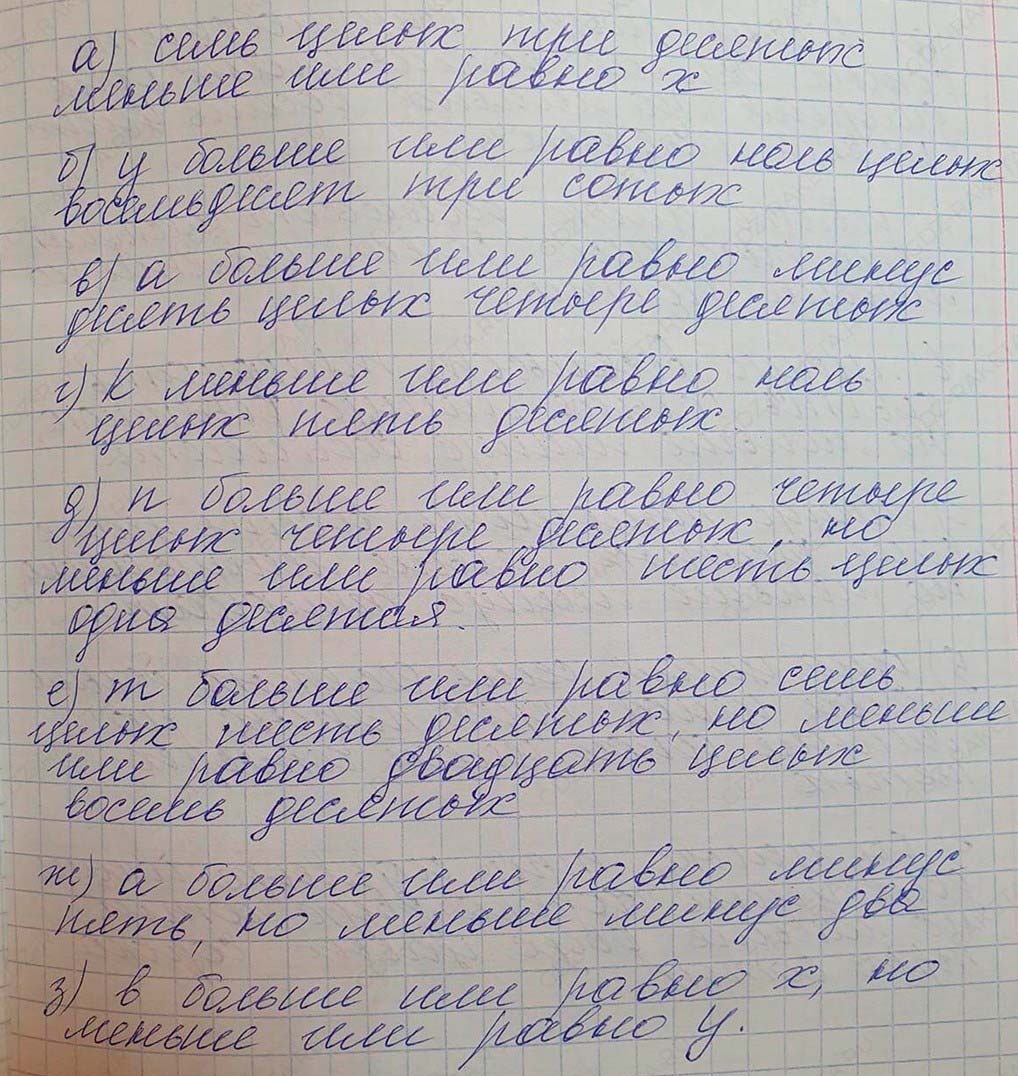 а) семь целых три десятых
меньше или равно х
б) у больше или равно ноль целых
восемьдесят три сотых
в) а больше или равно минус
десять целых четыре десятых
г) к меньше или равно ноль
целых пять десятых
д) п больше или равно четыре
целых четыре десятых, но
меньше или равно шесть целых
одна десятая.
е) т больше или равно семь
целых шесть десятых, но меньше
или равно двадцать целых
восемь десятых
ж) а больше или равно минус
пять, но меньше минус два
з) в больше или равно х, но
меньше или равно у.